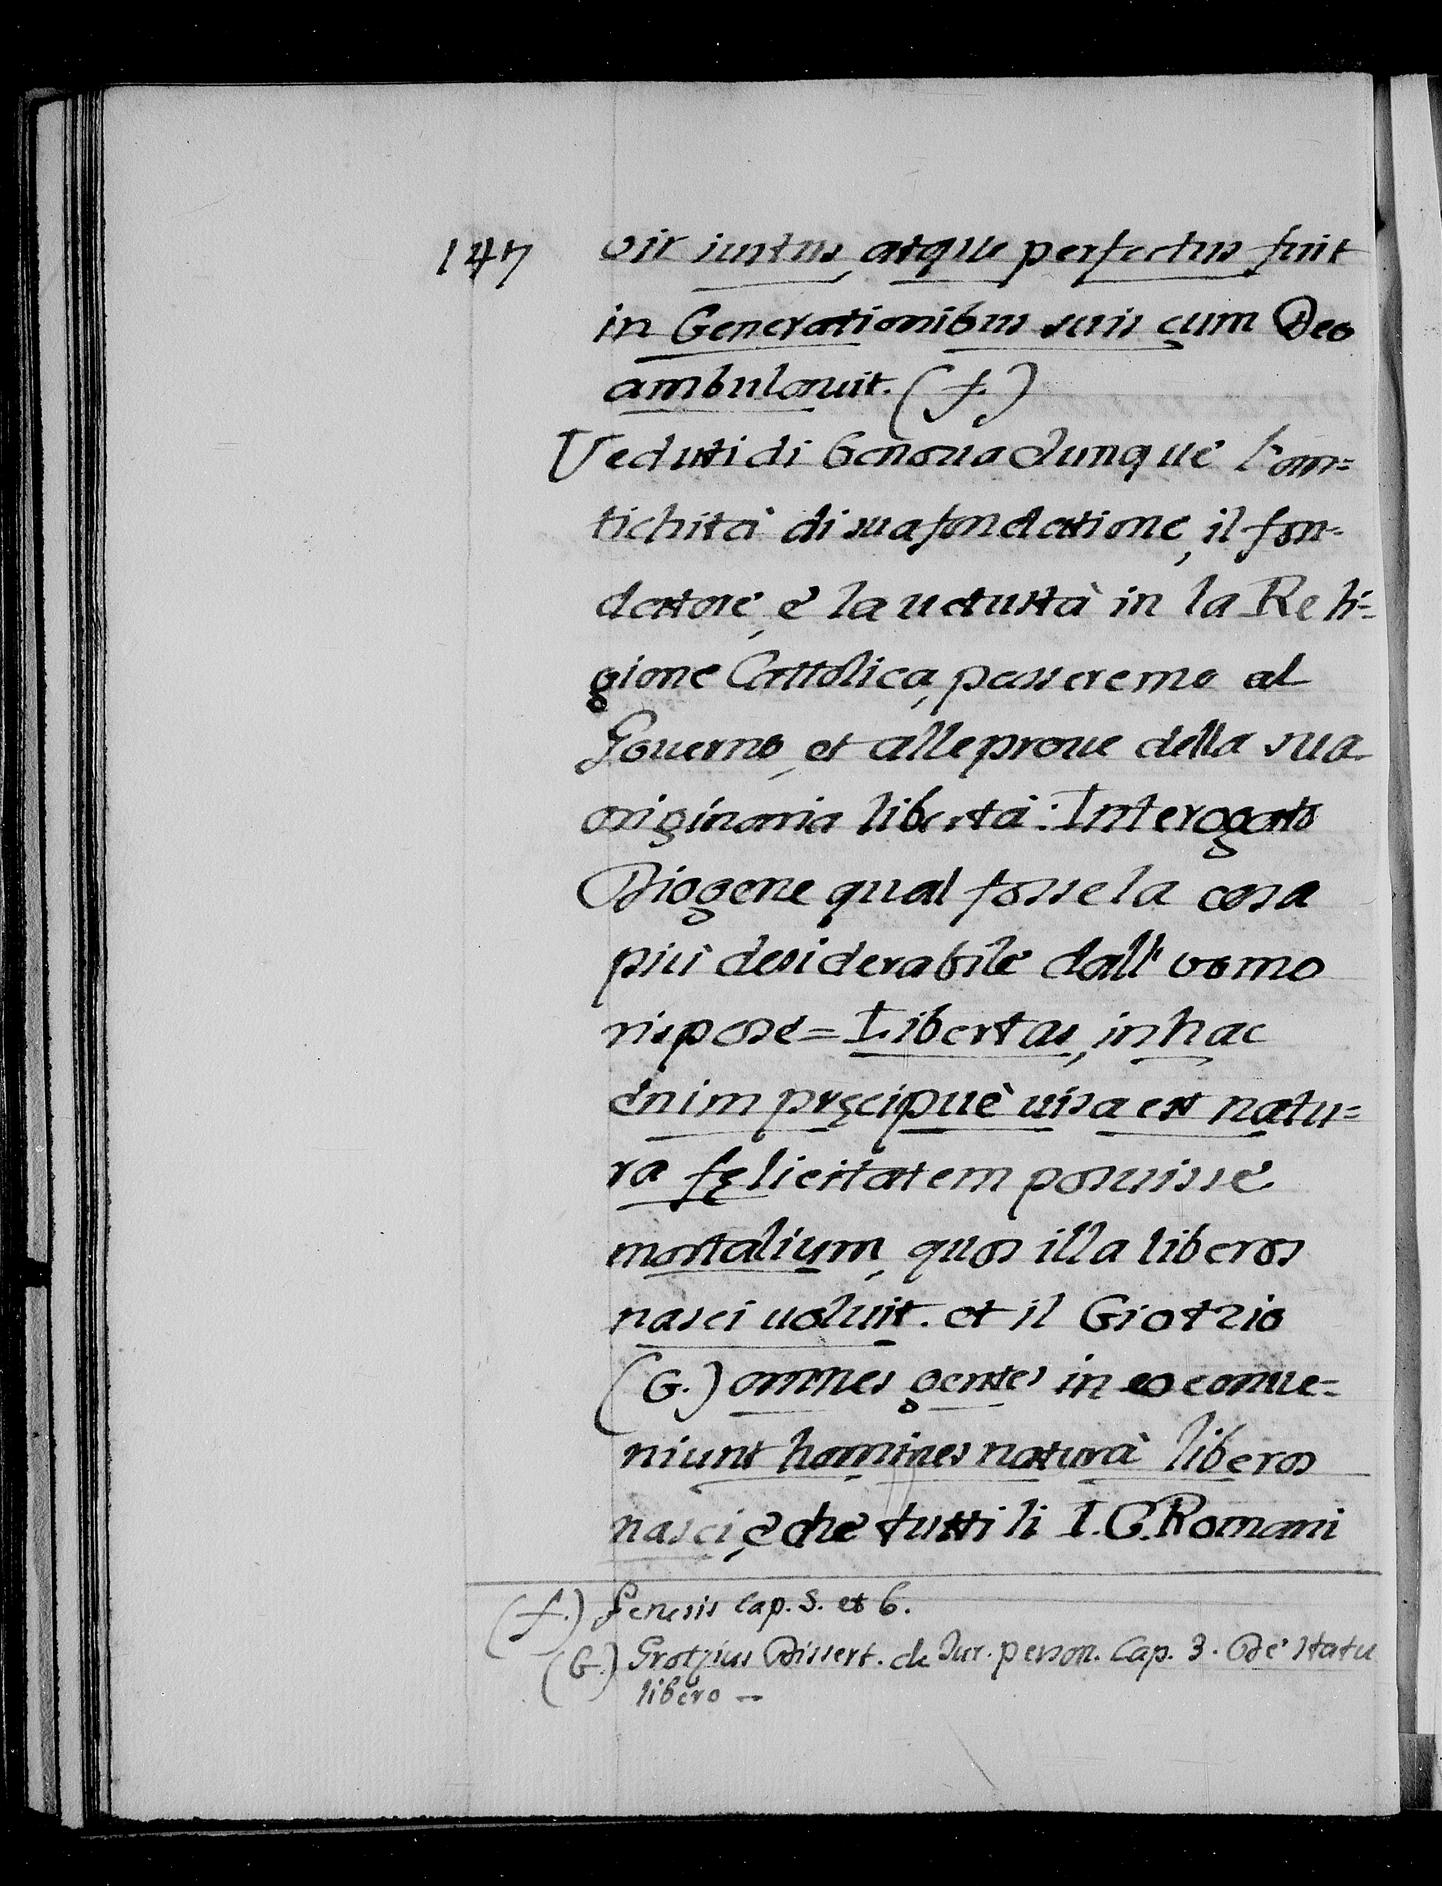 147
vir iustus, atque perfectus fuit
in Generationibus suis cum Deo
ambulauit. (f.)
Veduti di Genoua dunque l'an=
tichità di sua fondatione, il fon=
datore, e la uetustà in la Reli=
gione Cattolica, passeremo al
Gouerno, et alle proue della sua
originaria libertà: Interogato
Diogene qual fosse la cosa
più desiderabile dall' uomo
rispose = Libertas, in hac
enim pręcipuè uisa est natu=
ra fęlicitatem posuisse
mortalium, quos illa liberos
nasci uoluit. et il Grotzio
(G.) omnes gentes in eo conue=
niunt homines naturà liberos
nasci, e che tutti li I.C. Romani
(f.) Genesis Cap. 5. et 6.
(G.) Grotzius Dissert. de Iur. person. Cap. 3. De statu
libero —